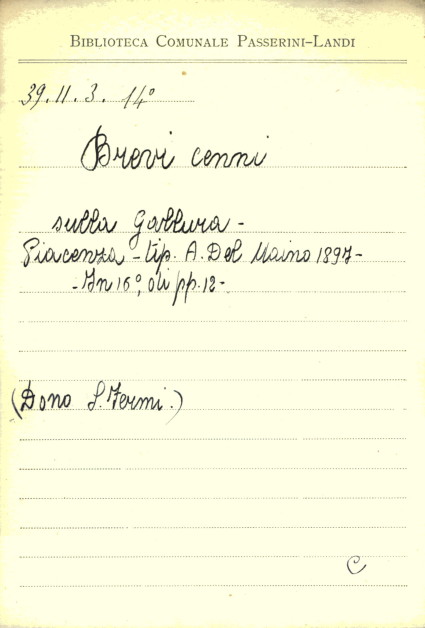 BIBLIOTECA COMUNALE PASSERINI-LANDI
39.II.3. 14°
Brevi cenni
sulla Gallura -
Piacenza - tip. A. Del Maino 1897 -
- In 16°, di pp. 12 -
(Dono S. Fermi.)
C